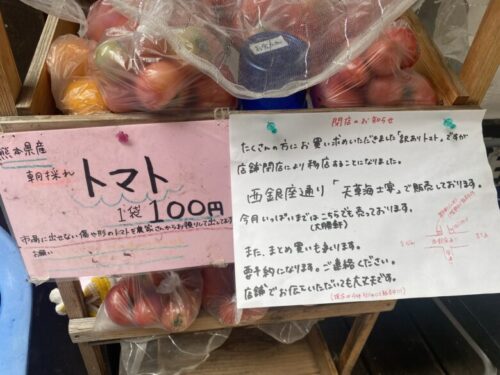 お金入れ
熊本県産
朝採れ
トマト
1袋 100円
市場に出せない傷や形のトマトを農家さんからお預りして出して
お願い
開店のお知らせ
たくさんの方にお買い求めいただきました「訳ありトマト」ですが
店舗開店により移店することになりました。
西銀座通り「天草海士宴」で販売しております。
今月いっぱいまではこちらでも売っております。
(大橋軒)
また、まとめ買いも承ります。
要予約になります。ご連絡ください。
店舗でお伝えいただいても大丈夫です。